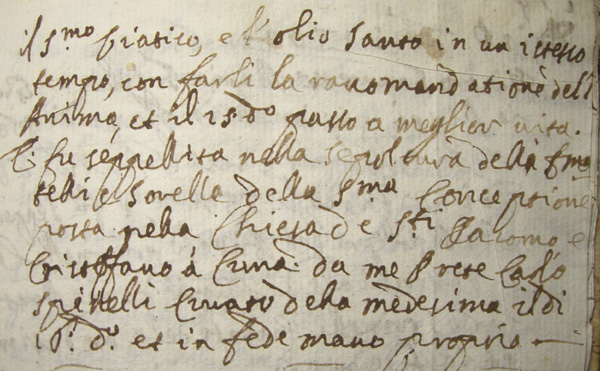 il S.mo Viatico, e l'olio Santo in un istesso
tempo, con farli la racomandatione dell
Anima, et il 15 d.o passo a meglior vita.
E fu seppellita nella sepoltura delli
telli e Sorelle della S.ma Conceptione
posta nella Chiesa de S.ti Jacomo, e
Cristofano à da me Prete Carlo
Spinelli Curato della medesima il di
d.o et in fede mano propria